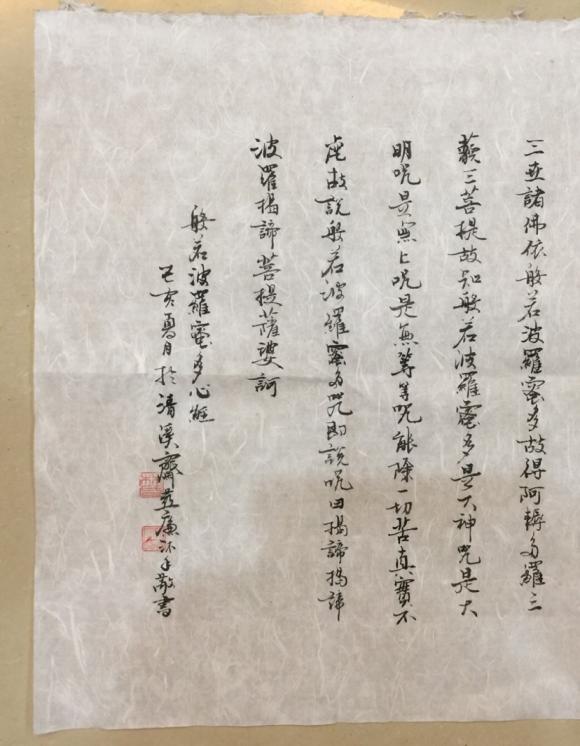 三世諸佛依般若波羅蜜多故得阿耨多羅三
藐三菩提故知般若波羅蜜多是大神咒是大
明咒是無上咒是無等等咒能除一切苦真實不
虛故說般若波羅蜜多咒即說咒曰揭諦揭諦
波羅揭諦菩提薩婆訶
般若波羅蜜多心經
己亥夏月於清溪齋廉沐手敬書